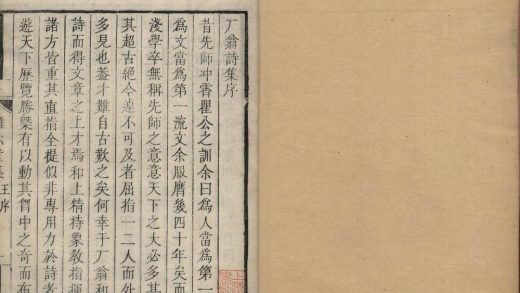 厂翁詩集序
昔先師冲霄瞿公之訓余曰為人當為第一
為文當為第一流文余服膺幾四十年矣而
淺學卒無稱先師之意意天下之大必多其
其超古絶今遠不可及者屈指一二人而外
多見也蓋才難自古歎之矣何幸于厂翁和
詩而得文章之上才焉和上精持象教指揮
諸方皆重其直指全提似非專用力於詩者
遊天下歷覽勝槩有以動其胷中之奇而布
王序